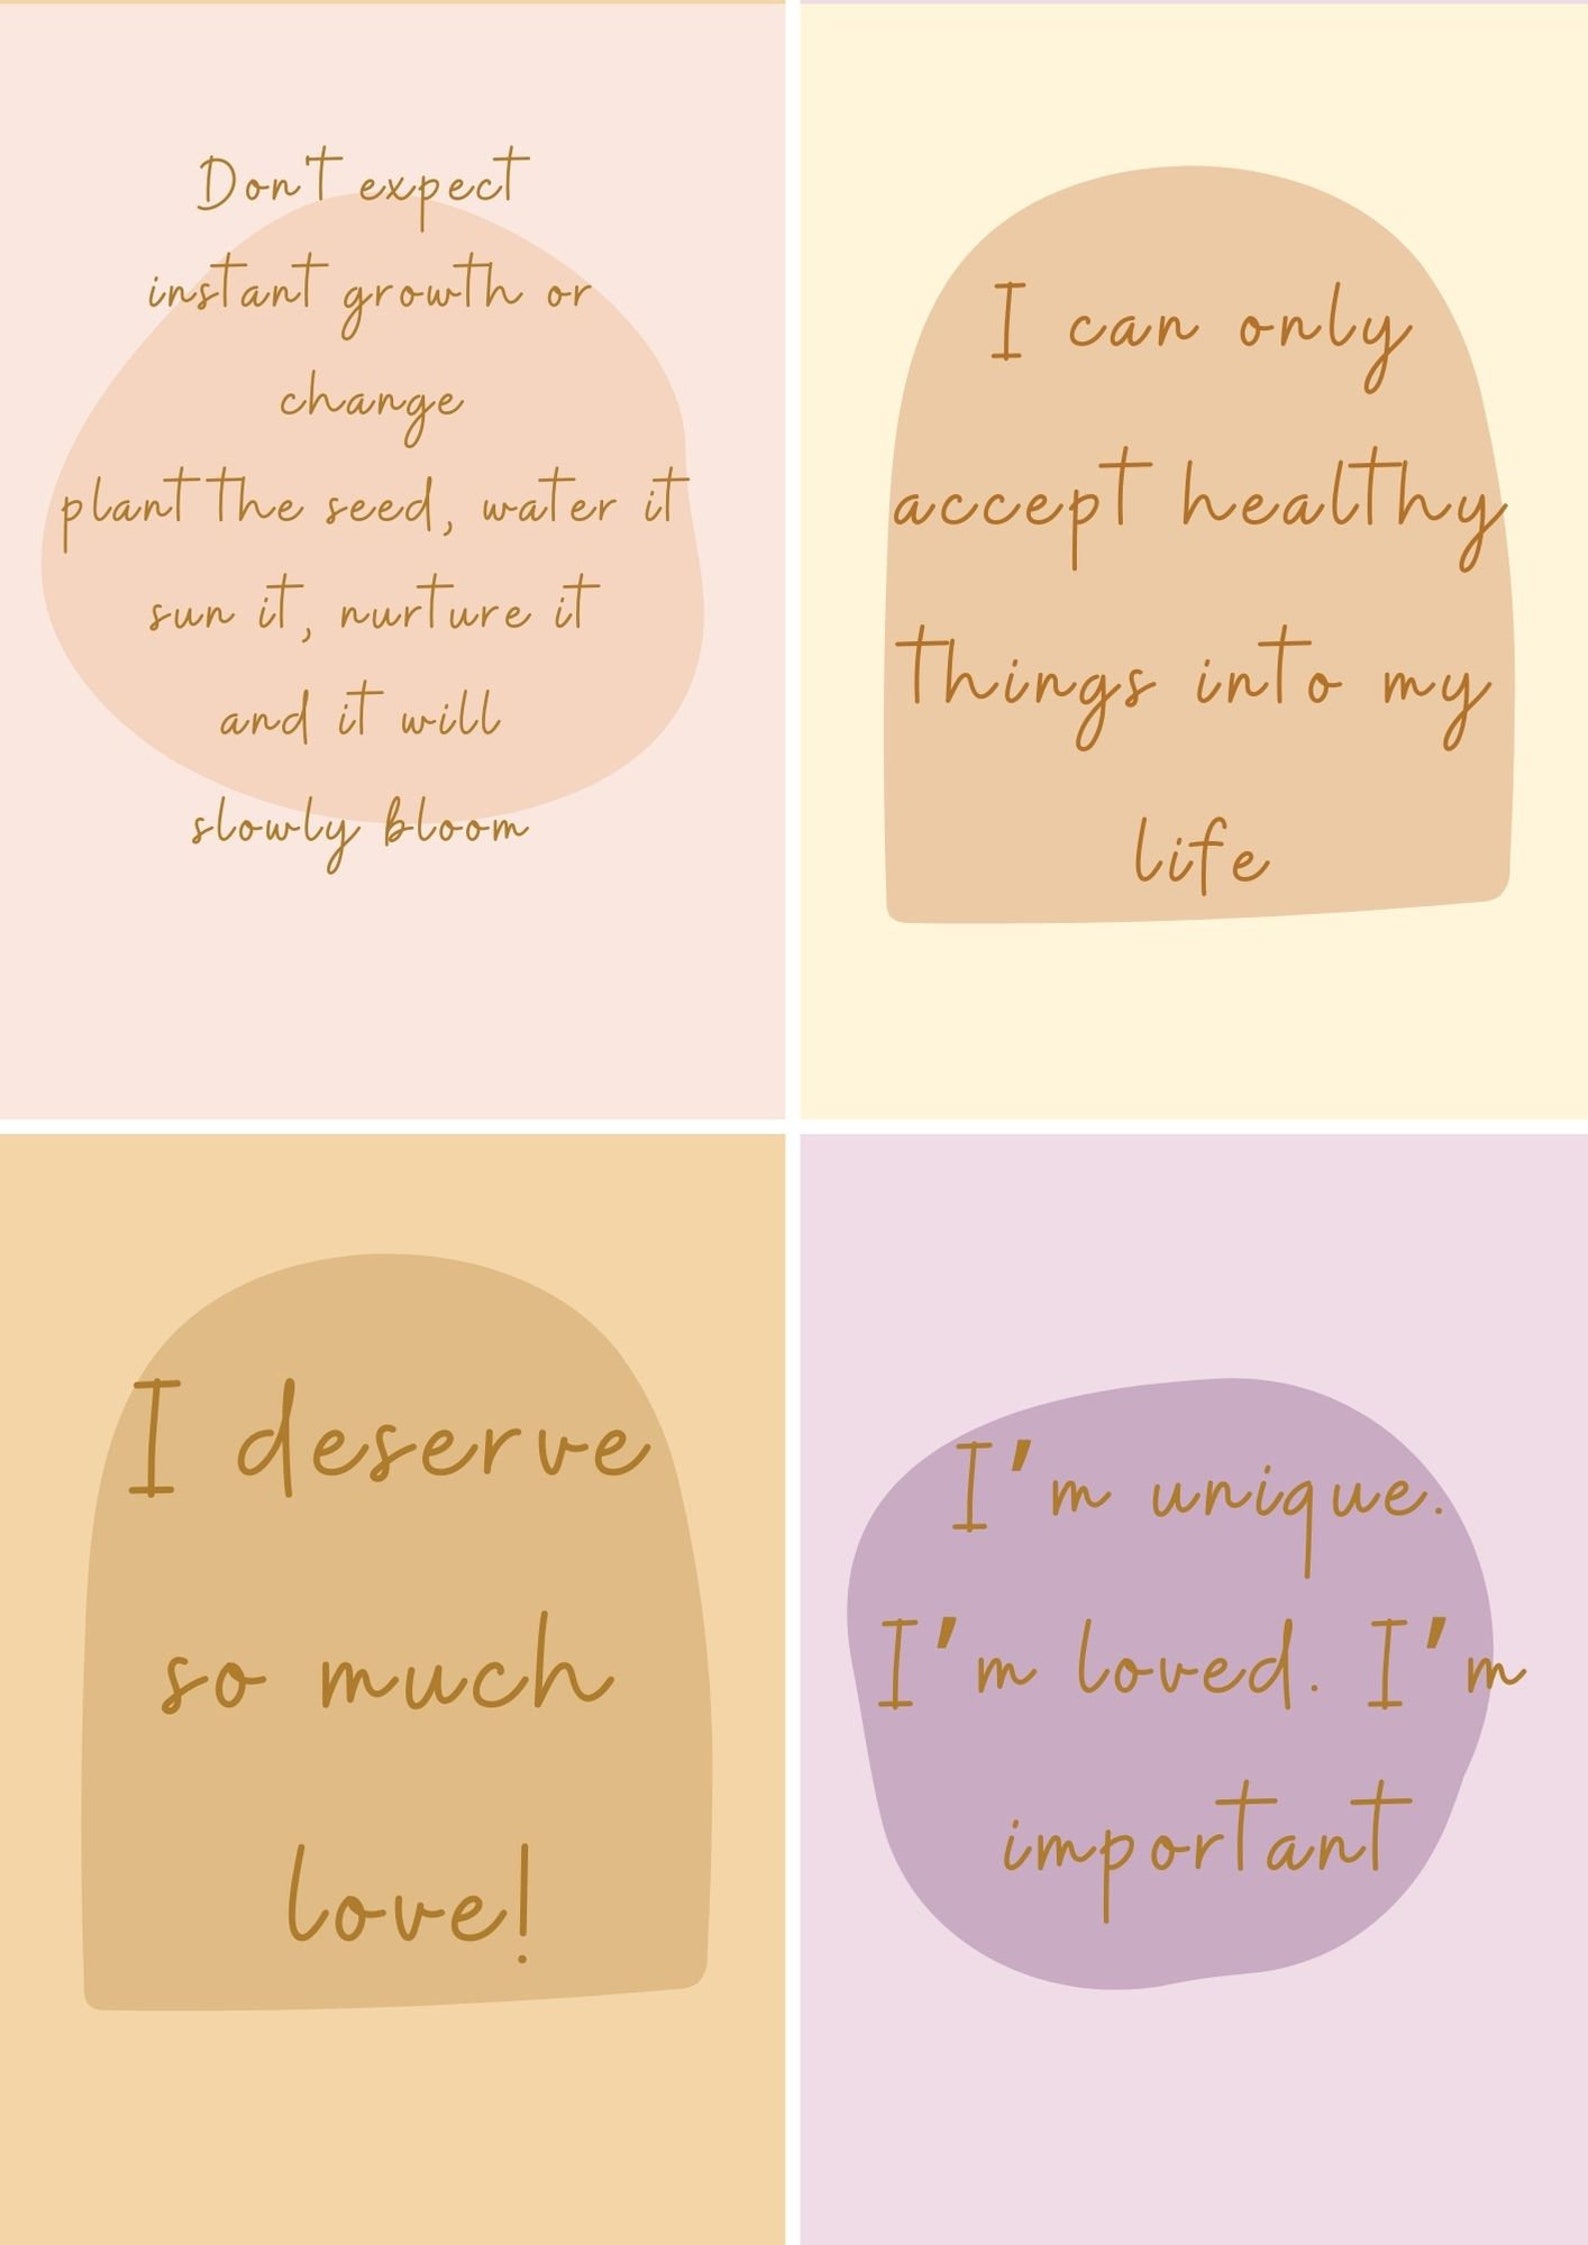 Don't expect
instant growth or
change
plant the seed, water it
sun it, nurture it
and it will
slowly bloom
I can only
accept healthy
things into my
life
I deserve
so much
love!
I'm unique.
I'm loved. I'm
important